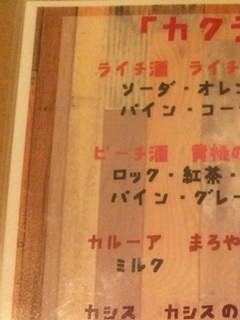 「カク
ライチ酒 ライチ
ソーダ・オレ
パイン・コー
ピーチ酒 黄桃の
ロック・紅茶・
パイン・グレー
カルーア まろや
ミルク
カシス カシスの